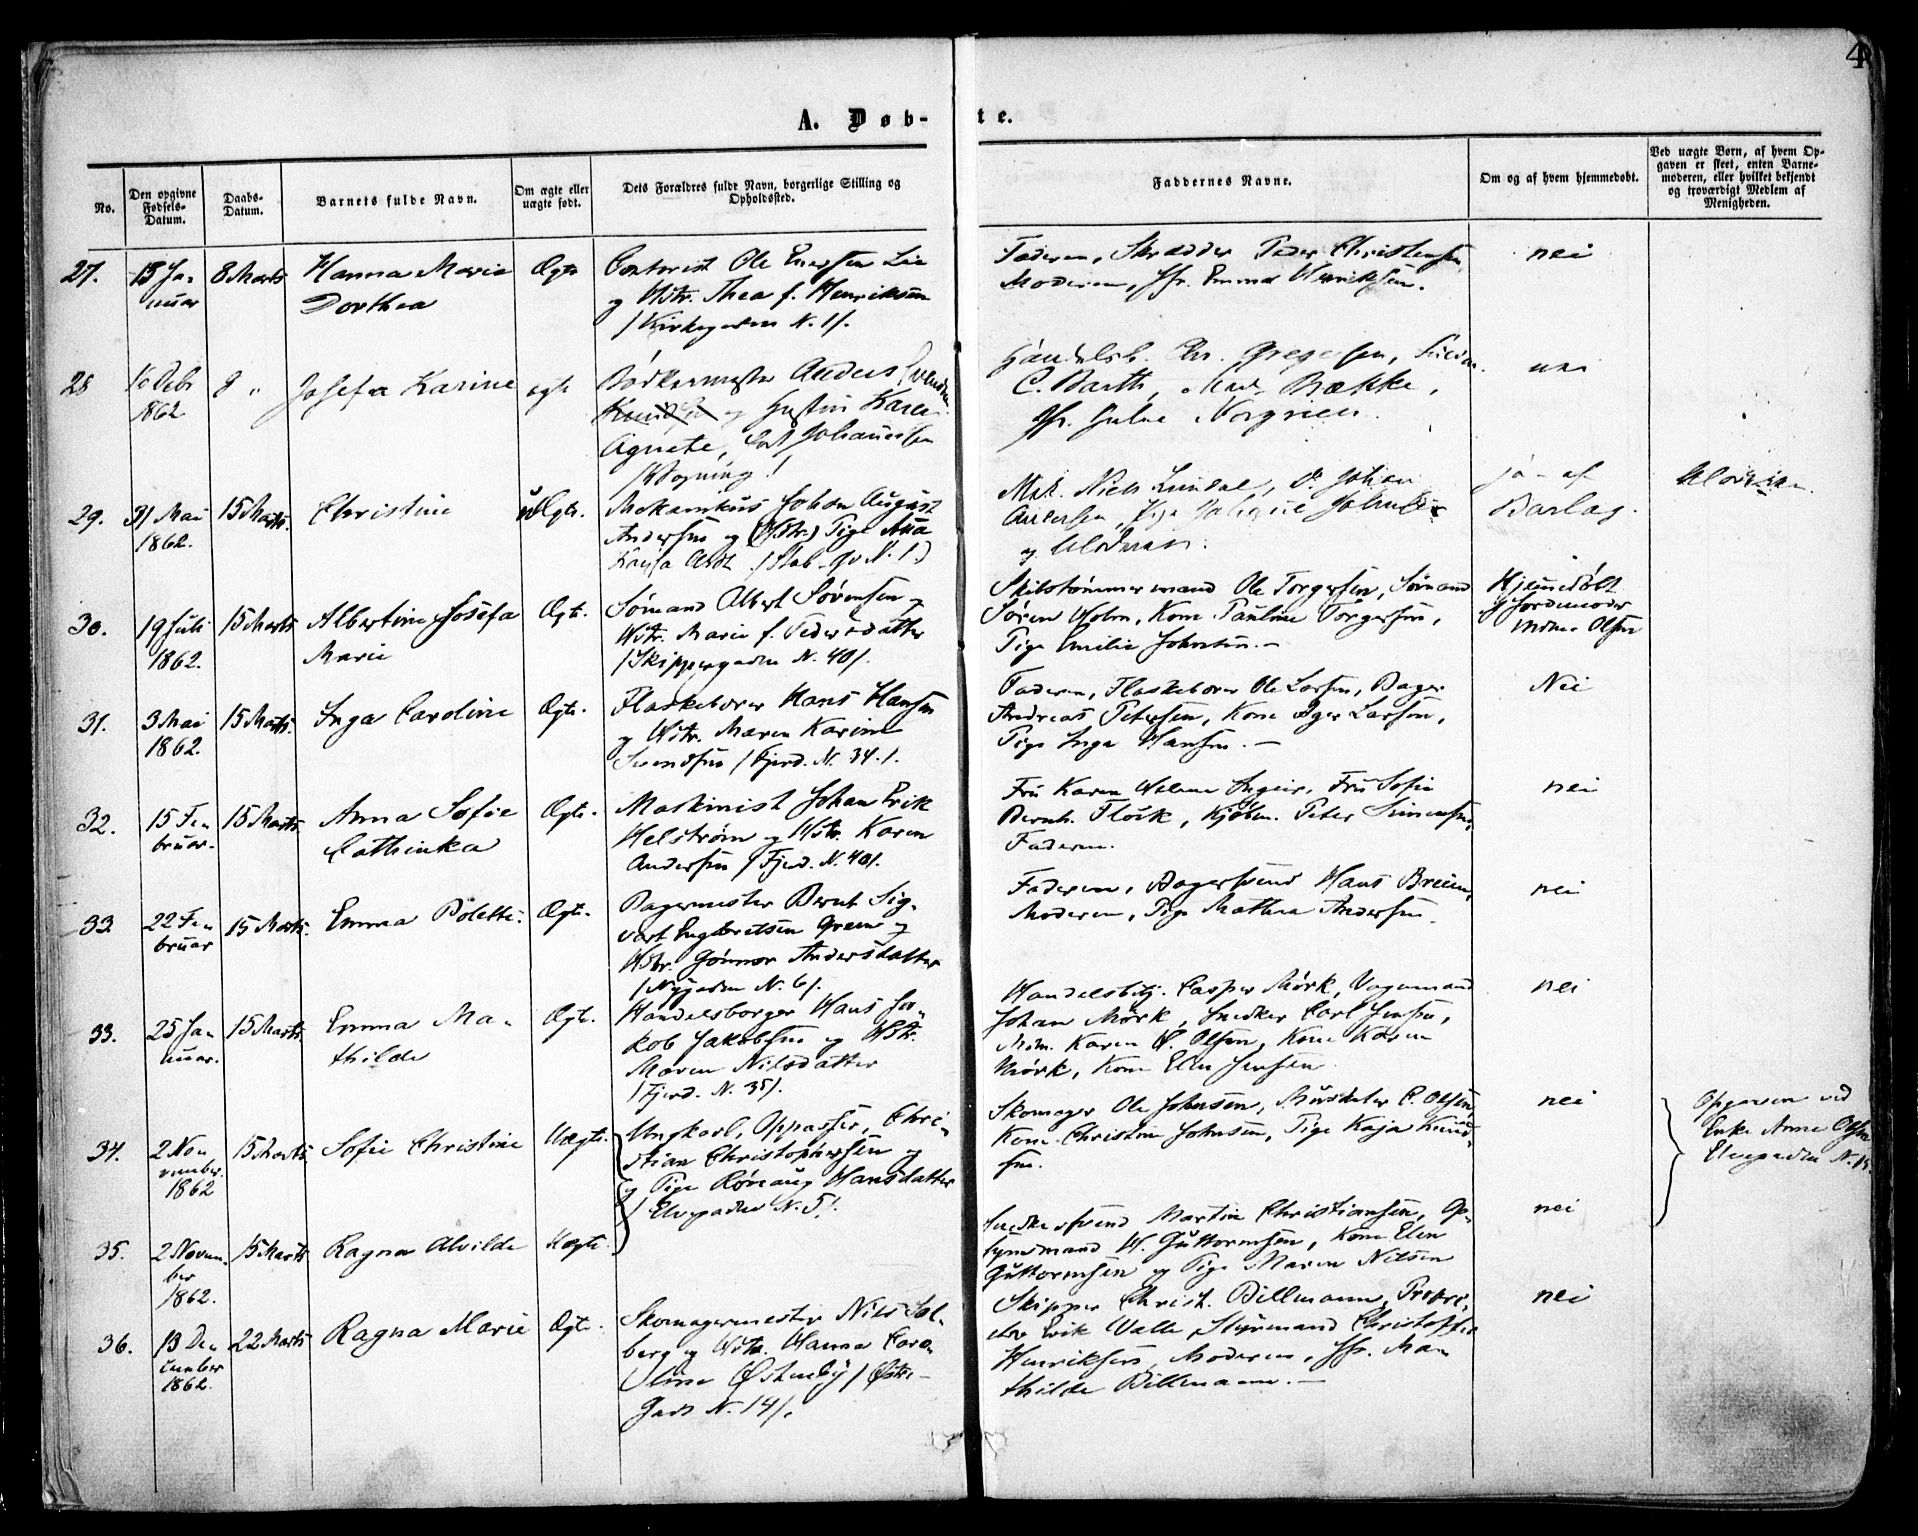 4
A. Døb-te.
No.
Den opgivne Fødsels-Datum.
Daabs-Datum.
Barnets fulde Navn.
Om ægte eller uægte født.
Dets Forældres fulde Navn, borgerlige Stilling og Opholdssted.
Faddernes Navne.
Om og af hvem hjemmedøbt.
Ved uægte Børn, af hvem Opgaven er skeet, enten Barnemoderen, eller hvilket bekjendt og troværdigt Medlem af Menigheden.
27. 13 Ja- 8 Marts Hanna Maria Ægte Contorist Ole Lie
nuar Dorthea og Hstr. Thea f. Henriksen
/Kirkegaden N. 1/.
Faderen, Skrædder Peder Christensen,
Moderen, Jfr. Emma Henriksen.
nei
28 10 Debr 8 " Josefa Karine egte Bødkermester Anders Svendsen
1862 og Hustru Karen
Agnete, Johannesen
Handelsb. Chr. Gregersen,
C. Barth, Mad. Bække,
Jfr. Norgreen.
29. 31 Mai 15 Marts. Christine uÆgte. Mekanikus Johan August
1862. Andersen og (Hstr.) Pige
N. 1)
Niels Lundal, Johan
Andersen,
og
ja - af
Barlag.
30. 19 Juli 15 Marts Albertine Josefa Ægte. Sømand Albert Sørensen og
1862. Marie Hstr. Marie f. Pedersdatter
/Skippergaden N. 40/.
Skibstømmermand Ole Torgersen, Sømand
Søren Holm, Kone Pauline Torgersen,
Pige Emilie Johnsen. -
Hjemmedøbt
af Jordemoder
Olsen
31. 3 Mai 15 Marts. Inga Caroline Ægte. Flaskebærer Hans Hansen
1862. og Hstr. Maren Karine
Svendsen /Fjerd. N. 34./
Faderen, Flaskebærer Ole Larsen, Bager
Andreas Petersen, Kone Larsen,
Pige Inga Hansen. -
Nei
32. 15 Fe- 15 Marts Anna Sofie Ægte. Maskinist Johan Erik
bruar. Cathinka Helstrøm og Hstr. Karen
Andersen /Fjerd. N. 40/.
Fru Karen Helene Fru Sofie
Bernh. Kjøbm. Peter Simensen,
Faderen.
nei
33 22 Fe- 15 Marts. Emma Bolette. Ægte. Bagermester Bernt Sig-
bruar vart Engbretsen og
Hstr. Gunnor Andersdatter
/Nygaden N. 6/.
Faderen, Bagersvend Hans Breien,
Moderen, Pige Mathea Andersen.
nei
33. 25 Ja- 15 Marts Emma Ma- Ægte. Handelsborger Hans Ja-
nuar. thilde kob Jakobsen og Hstr.
Maren Nilsdatter
/Fjerd. N. 35/.
Handelsbtj. Casper Mørk, Vognmand
Johan Mørk, Snedker Carl Jensen,
Mdm. Karen O. Olsen, Kone Karen
Mørk, Kone Elen Jensen
nei
34. 2 No- 15 Marts Sofie Christine Uægte. Ungkarl, Oppasser, Chri-
vember stian Christophersen og
1862 og Pige Rønaug Hansdatter
/Elvegaden N. 5/.
Skomager Ole Johnsen, Murskater C. Olsen,
Kone Christine Johnsen, Pige Kaja Knud-
sen.
nei
Opgaven ved
Enke Anne Olsen
Elvegaden N.
35. 2 Novem- 15 Marts Ragna Alvilde Uægte.
ber
1862.
Snedkersvend Martin Christiansen, Op-
synsmand H. Guttormsen, Kone Elen
Guttormsen og Pige Maren Nilsen
nei
36. 13 De- 22 Marts Ragna Marie Ægte. Skomagermester Nils Sol-
cember berg og Hstr. Hanna Caro-
1862. line Østenby /Østre-
Gade N. 14/.
Skipper Christ. Billmann, Proprie-
tær Erik Valle, Styrmand Christoffer
Henriksen, Moderen, Jfr. Ma-
thilde Billmann. -
nei